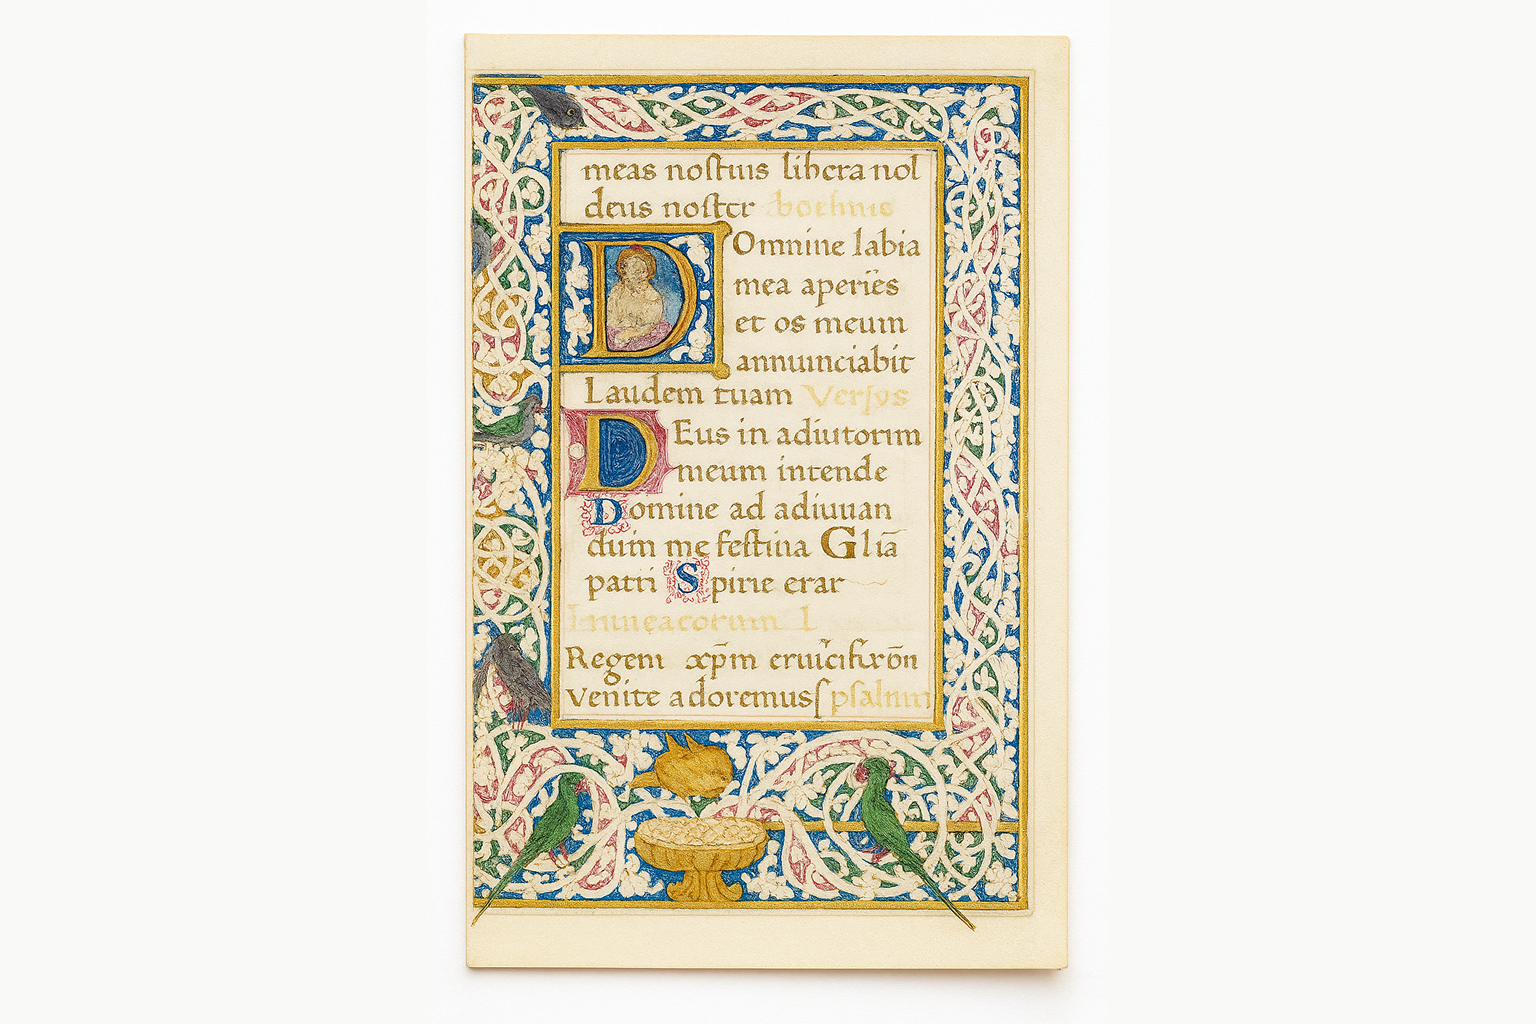 meas nostuis libera nol
deus nostcr
DOmnine labia
mea aperies
et os meum
annuinciabit
Laudem tuam Versos
DEus in adiutorim
meum intende
Domine ad adiuuan
duin me festina Gliā
patri Spirie erar
Regem xp̄m eruicifixōn
Venite adoremus psalmi